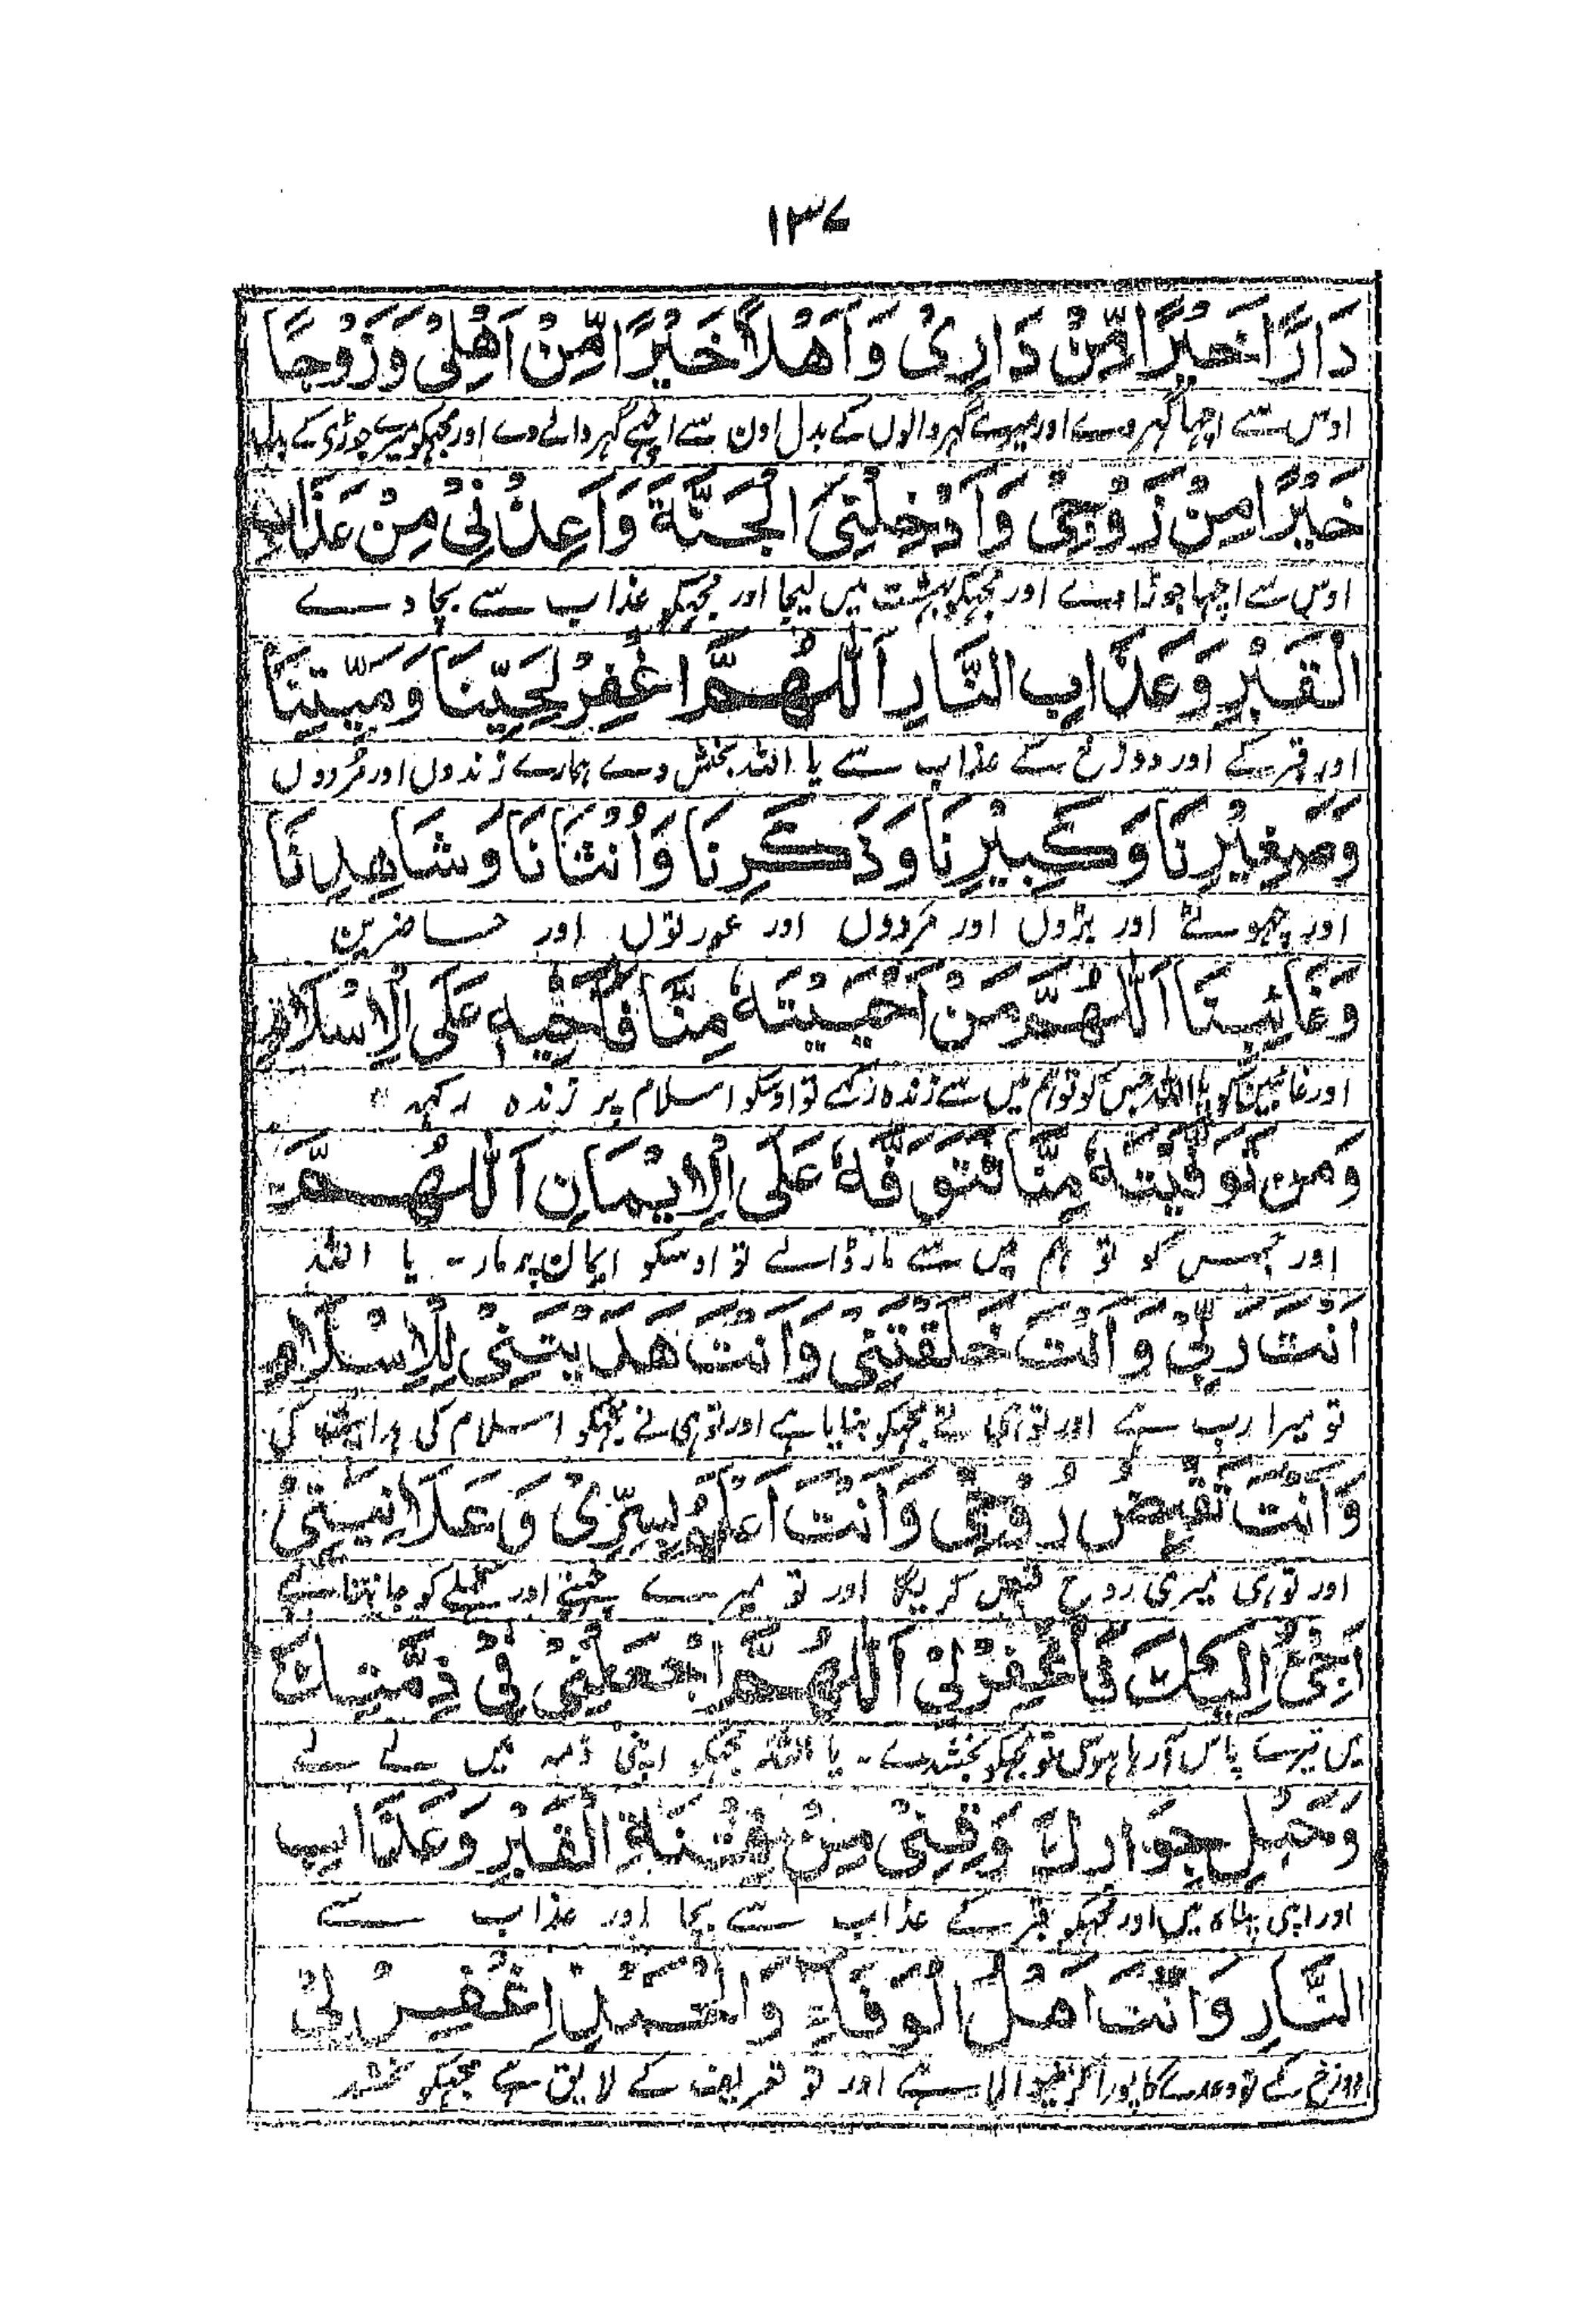 ١٣٧
دَارًا خَيْرًا مِّنْ دَارِىْ وَاَهْلًا خَيْرًا مِّنْ اَهْلِىْ وَزَوْجًا
اوس سے اچہا گہر دے اور میرے گہر والوں کے بدل اون سے اچہے گہر والے دے اور مجہکو میرے جوڑی کے بدل
خَيْرًا مِنْ زَوْجِىْ وَاَدْخِلْنِىَ الْجَنَّةَ وَاَعِذْنِىْ مِنْ عَذَابِ
اوس سے اچہا جوڑا دے اور مجہکو بہشت میں لیجا اور مجہکو عذاب سے بچا دے
الْقَبْرِ وَعَذَابِ النَّارِ اَللّٰهُمَّ اغْفِرْ لِحَيِّنَا وَمَيِّتِنَا
اور قبر کے اور دوزخ کے عذاب سے یا اللہ بخش دے ہمارے زندوں اور مُردوں
وَصَغِيْرِنَا وَكَبِيْرِنَا وَذَكَرِنَا وَاُنْثَانَا وَشَاهِدِنَا
اور چہوٹے اور بڑوں اور مردوں اور عورتوں اور حاضرین
وَغَائِبِنَا اَللّٰهُمَّ مَنْ اَحْيَيْتَهٗ مِنَّا فَاَحْيِهٖ عَلَى الْاِسْلَامِ
اور غائبین کو یا اللہ جس کو تو ہم میں سے زندہ رکہے تو اوسکو اسلام پر زندہ رکہہ
وَمَنْ تَوَفَّيْتَهٗ مِنَّا فَتَوَفَّهٗ عَلَى الْاِيْمَانِ اَللّٰهُمَّ
اور جس کو تو ہم میں سے مار ڈالے تو اوسکو ایمان پر مار ۔ یا اللہ
اَنْتَ رَبِّىْ وَاَنْتَ خَلَقْتَنِىْ وَاَنْتَ هَدَيْتَنِىْ لِلْاِسْلَامِ
تو میرا رب ہے اور تو ہی نے مجہکو بنایا ہے اور تو ہی نے مجہکو اسلام کی ہدایت کی
وَاَنْتَ تَقْبِضُ رُوْحِىْ وَاَنْتَ اَعْلَمُ بِسِرِّىْ وَعَلَانِيَتِىْ
اور تو ہی میری روح قبض کریگا اور تو میرے چہپے اور کہلے کو جانتا ہے
اَجِىْءُ اِلَيْكَ فَاغْفِرْ لِىْ اَللّٰهُمَّ اجْعَلْنِىْ فِىْ ذِمَّتِكَ
میں تیرے پاس آ رہا ہوں تو مجہکو بخشدے ۔ یا اللہ مجہکو اپنی ذمہ میں لے لے
وَحَبْلِ جِوَارِكَ وَقِنِىْ مِنْ فِتْنَةِ الْقَبْرِ وَعَذَابِ
اور اپنی پناہ میں اور مجہکو قبر کے عذاب سے بچا اور عذاب سے
النَّارِ وَاَنْتَ اَهْلُ الْوَفَاءِ وَالْحَمْدِ اِغْفِرْ لِىْ
دوزخ کے تو وعدے کا پورا کرنیوالا ہے اور تو تعریف کے لایق ہے مجہکو بخشد